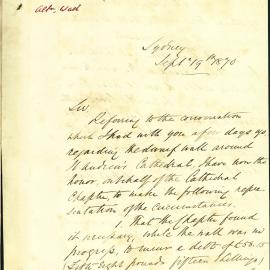 Sydney
Sept 19th 1870
Sir
Referring to the conversation
which I had with you a few days ago
regarding the dwarf wall around
St Andrew's Cathedral, I have now the
honor, on behalf of the Cathedral
Chapter, to make the following repre-
sentation of the circumstances.
1. That the Chapter found
it necessary, while the wall was in
progress, to incur a debt of £58.15
Fifty eight pounds fifteen shillings)